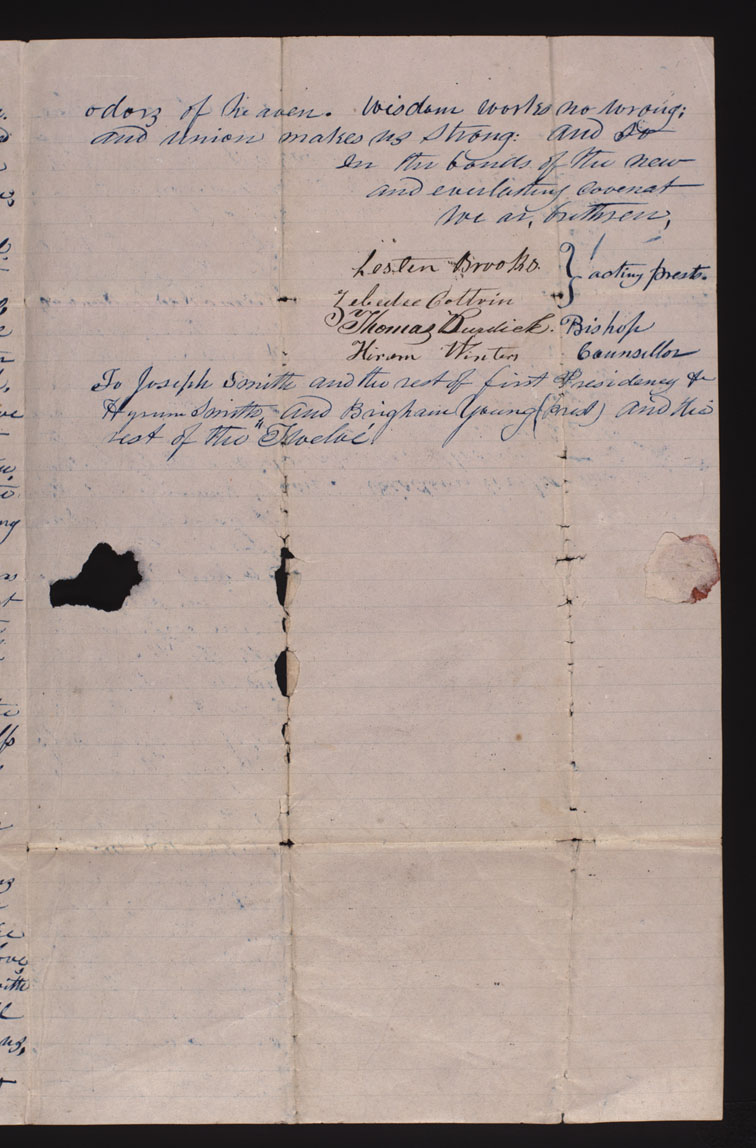 odors of heaven. Wisdom works no wrong;
and union makes us strong: and so
In the bonds of the new
and everlasting covenat
We ar, brethren,
Lester Brooks } acting prests.
Zebedee Coltrin
Thomas Burdick. Bishop
Hiram Winters Counsellor
To Joseph Smith and the rest of first Presidency &
Hyrum Smith, and Brigham Young (Prest) and the
rest of the "Twelve"